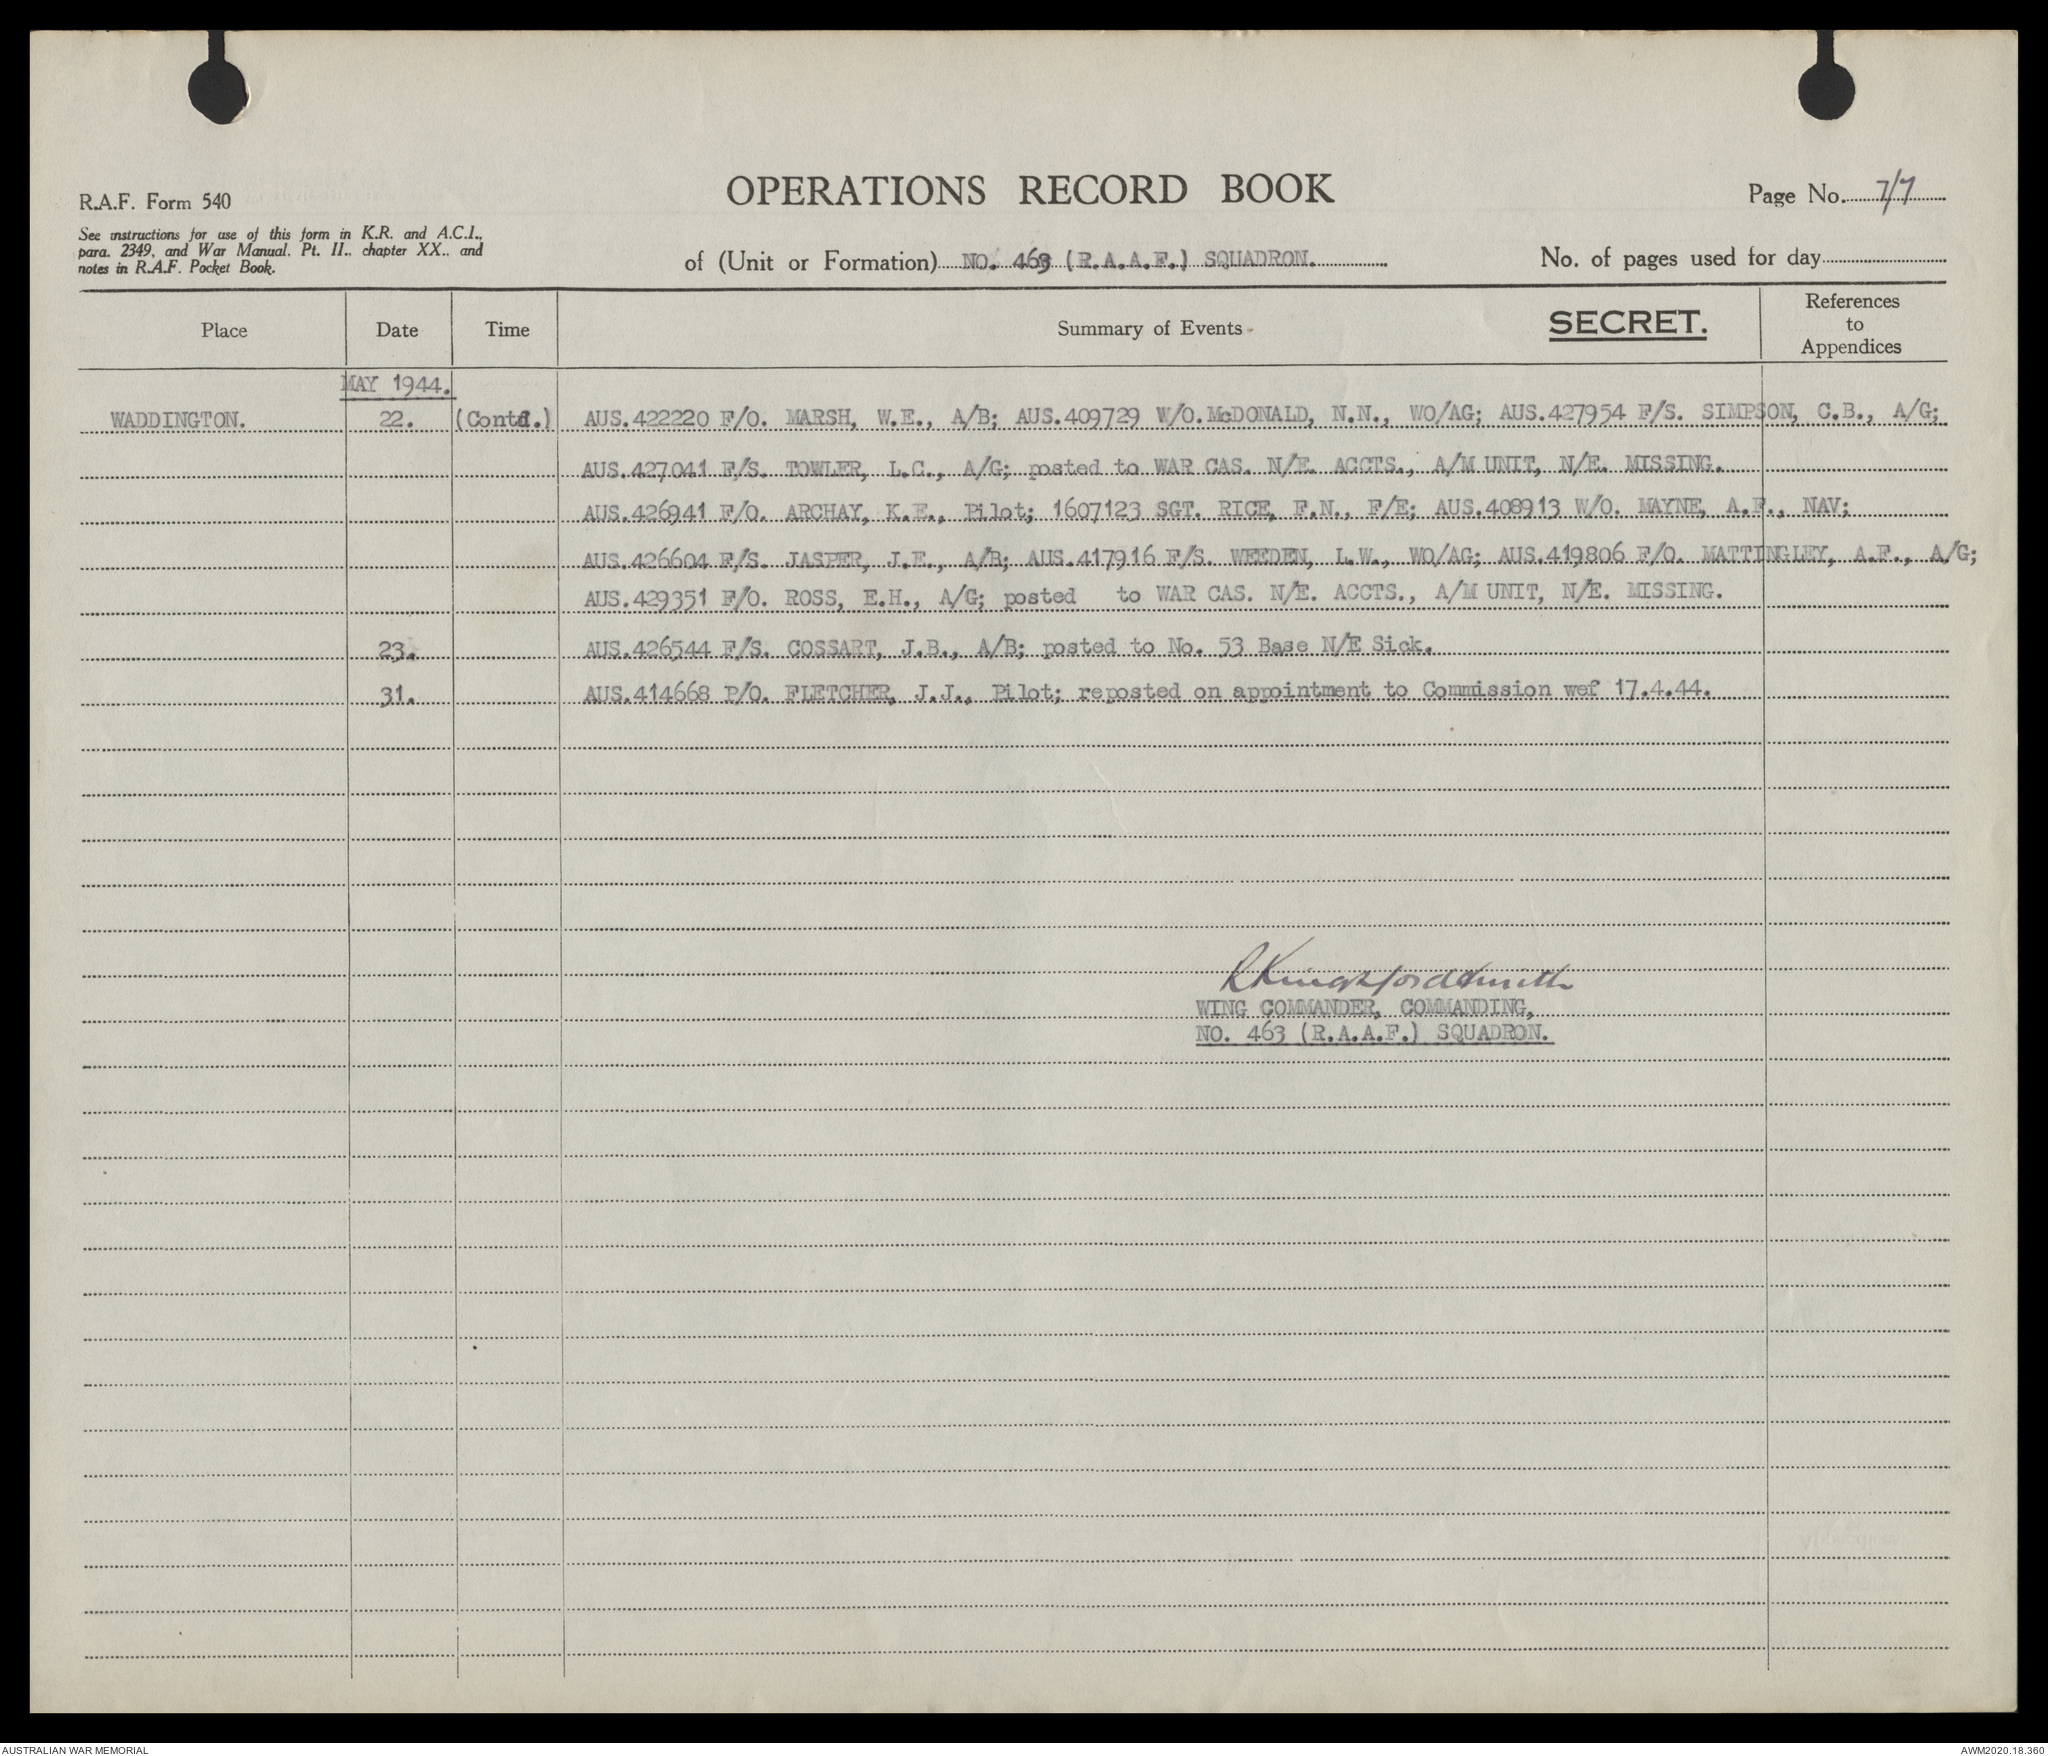 R.A.F. Form 540
See instructions for use of this form in K.R. and A.C.I.,
para. 2349, and War Manual. Pt. II., chapter XX., and
notes in R.A.F. Pocket Book.
OPERATIONS RECORD BOOK
of (Unit or Formation) NO. 463 (R.A.A.F.) SQUADRON.
Page No. 7/7
No. of pages used for day
Place Date Time Summary of Events SECRET. References
to
Appendices
MAY 1944.
WADDINGTON. 22. (Contd.) AUS.422220 F/O. MARSH, W.E., A/B; AUS.409729 W/O.McDONALD, N.N., WO/AG; AUS.427954 F/S. SIMPSON, C.B., A/G;
AUS.427041 F/S. TOWLER, L.C., A/G; posted to WAR CAS. N/E. ACCTS., A/M UNIT, N/E. MISSING.
AUS.426941 F/O. ARCHAY, K.E., Pilot; 1607123 SGT. RICE, F.N., F/E; AUS.408913 W/O. MAYNE, A.F., NAV;
AUS.426604 F/S. JASPER, J.E., A/B; AUS.417916 F/S. WEEDEN, L.W., WO/AG; AUS.419806 F/O. MATTINGLEY, A.F., A/G;
AUS.429351 F/O. ROSS, E.H., A/G; posted to WAR CAS. N/E. ACCTS., A/M UNIT, N/E. MISSING.
23. AUS.426544 F/S. COSSART, J.B., A/B; posted to No. 53 Base N/E Sick.
31. AUS.414668 P/O. FLETCHER, J.J., Pilot; reposted on appointment to Commission wef 17.4.44.
R Kingsford Smith
WING COMMANDER, COMMANDING,
NO. 463 (R.A.A.F.) SQUADRON.
AUSTRALIAN WAR MEMORIAL AWM2020.18.360